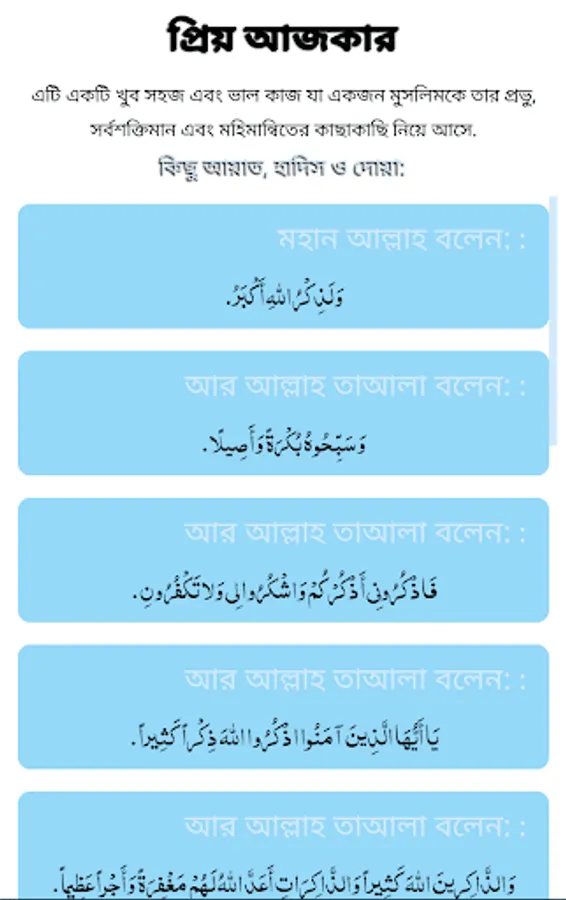 প্রিয় আজকার
এটি একটি খুব সহজ এবং ভাল কাজ যা একজন মুসলিমকে তার প্রভু,
সর্বশক্তিমান এবং মহিমান্বিতের কাছাকাছি নিয়ে আসে.
কিছু আয়াত, হাদিস ও দোয়া:
মহান আল্লাহ বলেন: :
وَلَذِكْرُ اللهِ أَكْبَرُ.
আর আল্লাহ তাআলা বলেন: :
وَسَبِّحُوهُ بُكْرَةً وَأَصِيلًا.
আর আল্লাহ তাআলা বলেন: :
فَاذْكُرُونِي أَذْكُرْكُمْ وَاشْكُرُوا لِي وَلا تَكْفُرُونِ.
আর আল্লাহ তাআলা বলেন: :
يَا أَيُّهَا الَّذِينَ آمَنُوا اذْكُرُوا اللهَ ذِكْراً كَثِيراً.
আর আল্লাহ তাআলা বলেন: :
وَالذَّاكِرِينَ اللهَ كَثِيراً وَالذَّاكِرَاتِ أَعَدَّ اللهُ لَهُمْ مَغْفِرَةً وَأَجْراً عَظِيماً.